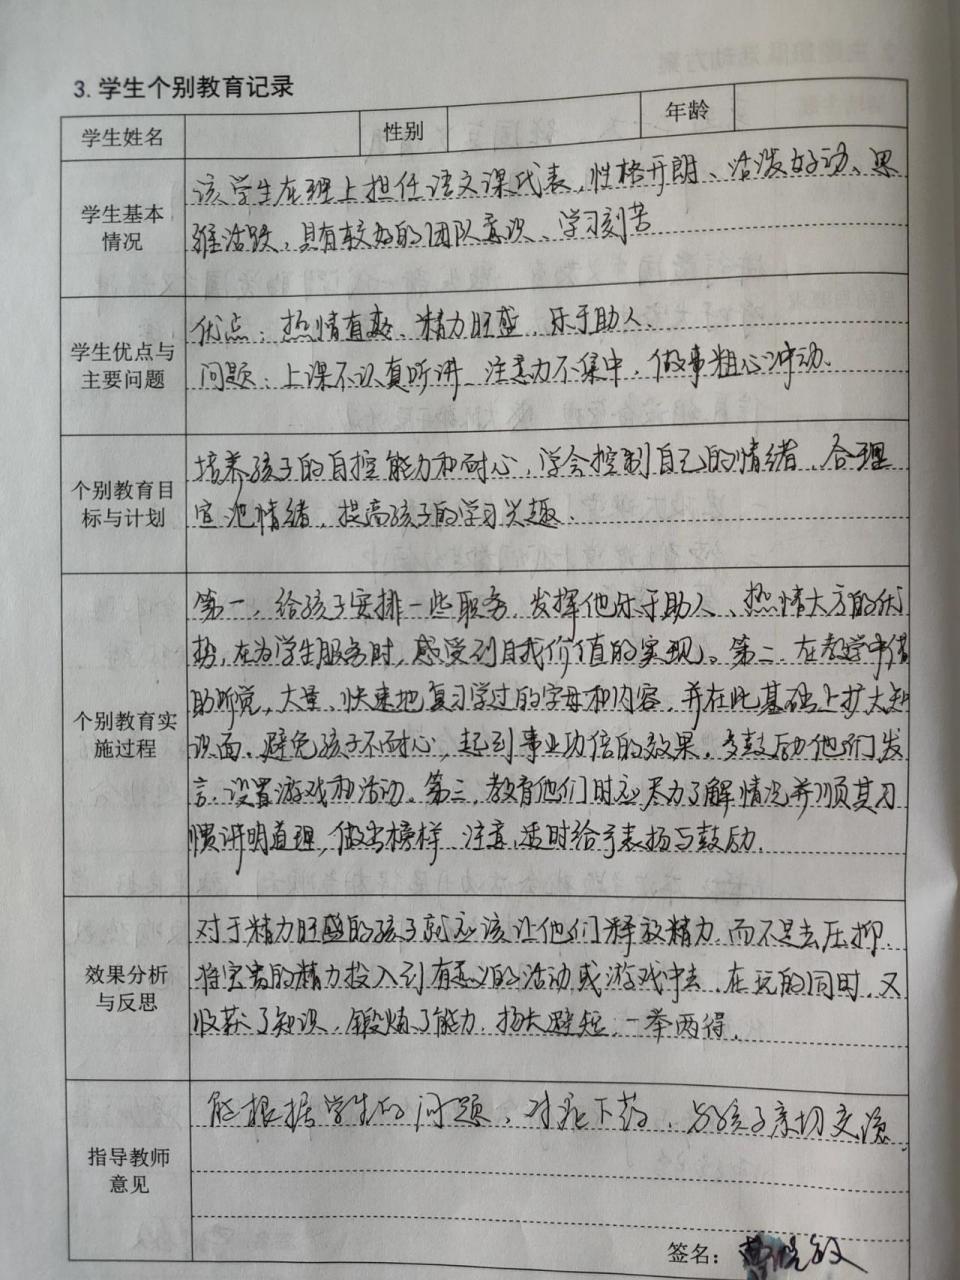 3. 学生个别教育记录
学生姓名 性别 年龄
学生基本情况
该学生在班上担任语文课代表,性格开朗、活泼好动、思
维活跃,具有较好的团队意识、学习刻苦
学生优点与主要问题
优点:热情有趣、精力旺盛、乐于助人、
问题:上课不认真听讲、注意力不集中,做事粗心冲动。
个别教育目标与计划
培养孩子的自控能力和耐心,学会控制自己的情绪,合理
宣泄情绪,提高孩子的学习兴趣.
个别教育实施过程
第一,给孩子安排一些职务,发挥他乐于助人、热情大方的优
势,在为学生服务时,感受到自我价值的实现。第二、在教学中借
助听觉,大量、快速地复习学过的字母和内容,并在此基础上扩大知
识面,避免孩子不耐心,起到事业功倍的效果,多鼓励他们发
言,设置游戏和活动。第三,教育他们时应尽力了解情况并顺其习
惯讲明道理,做出榜样 注意适时给予表扬与鼓励.
效果分析与反思
对于精力旺盛的孩子就应该让他们释放精力,而不是去压抑.
将宝贵的精力投入到有意义的活动或游戏中去,在玩的同时,又
收获了知识,锻炼了能力,扬长避短,一举两得.
指导教师意见
能根据学生的问题,对症下药,与孩子亲切交流
签名: